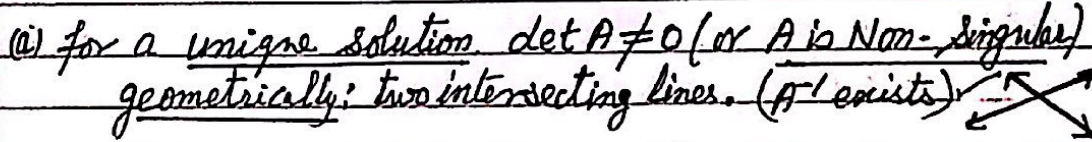 (i) for a unique solution. det A ≠ 0 (or A is Non-Singular)
geometrically: two intersecting lines. (A⁻¹ exists)